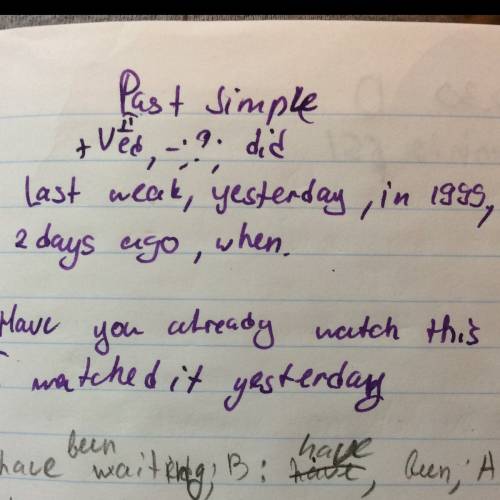 Past Simple
+ V II ed, - ? did
Last weak, yesterday, in 1995,
2 days ago, when.
Have you already watch this
watched it yesterday
been
have
have waiting; B: have, been, A